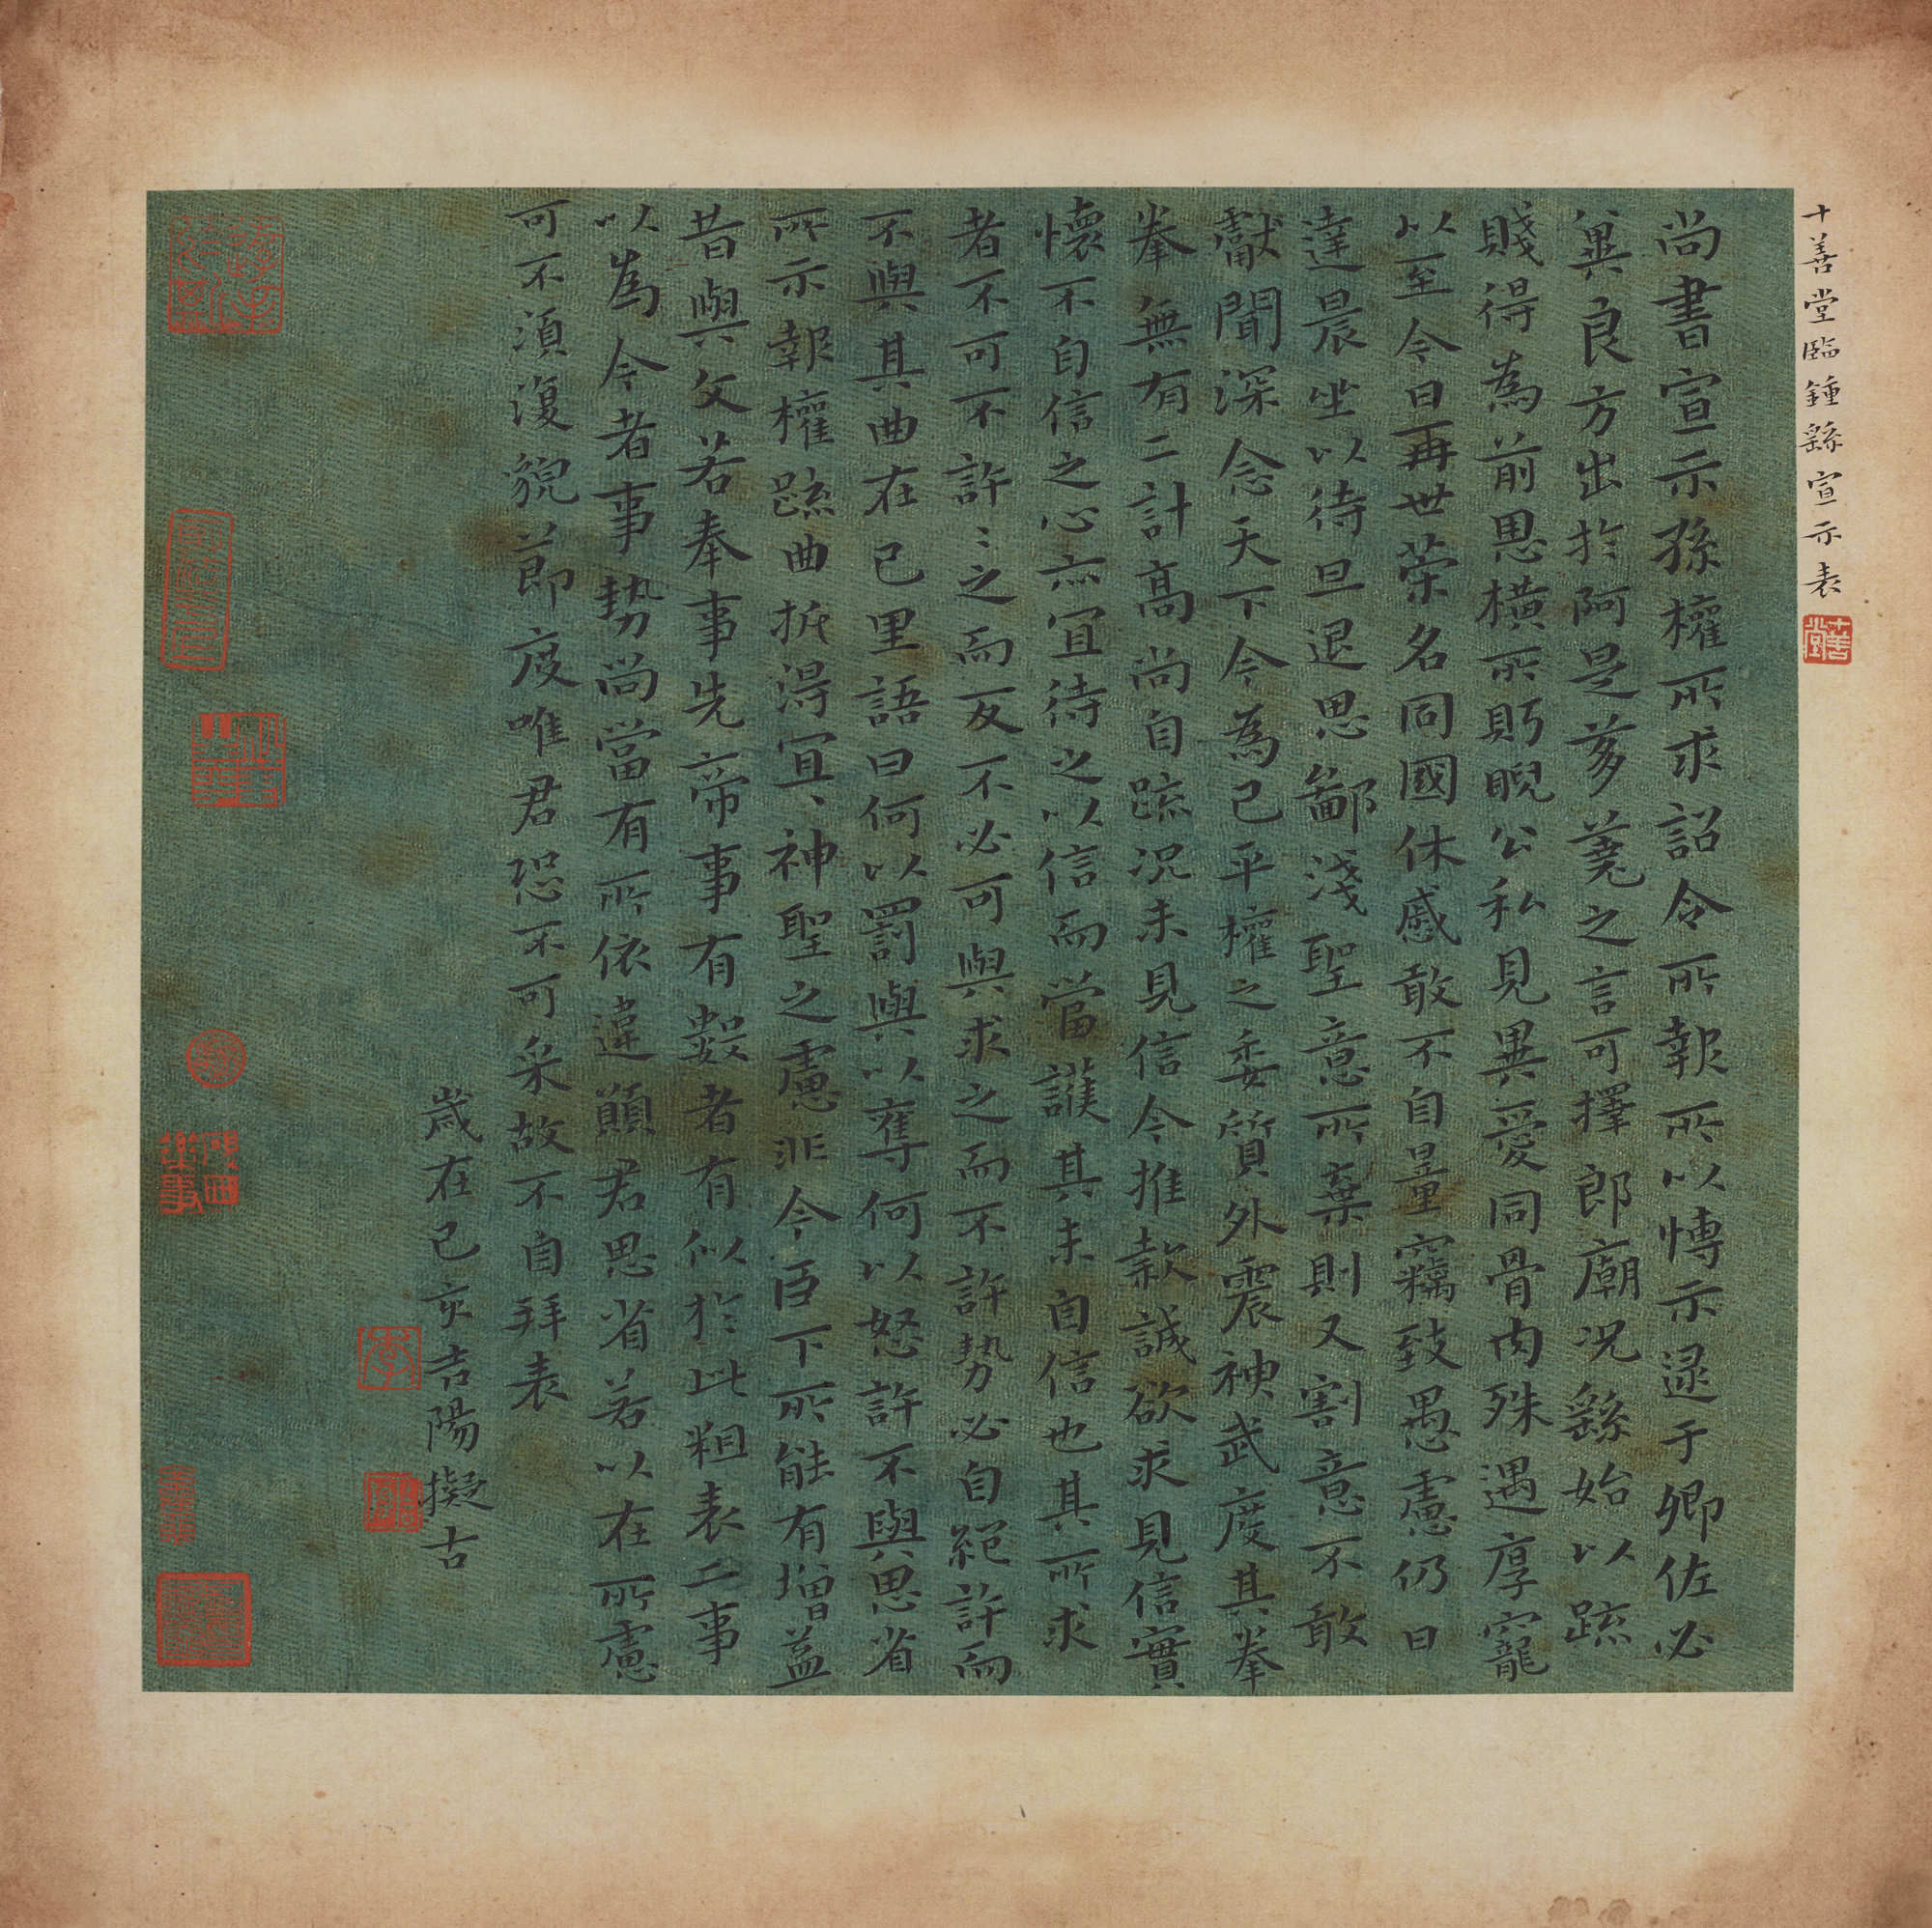 十善堂臨鍾繇宣示表
尚書宣示孫權所求詔令所報所以博示逮于卿佐必
冀良方出於阿是芻蕘之言可擇郎廟況繇始以疏
賤得為前恩橫所盱睨公私見異愛同骨肉殊遇厚寵
以至今日再世榮名同國休慼敢不自量竊致愚慮仍日
達晨坐以待旦退思鄙淺聖意所棄則又割意不敢
獻聞深念天下今為已平權之委質外震神武度其拳
拳無有二計高尚自疏況未見信今推款誠欲求見信實
懷不自信之心亦宜待之以信而當護其未自信也其所求
者不可不許許之而反不必可與求之而不許勢必自絕許而
不與其曲在己里語曰何以罰與以奪何以怒許不與思省
所示報權疏曲折得宜宜神聖之慮非今臣下所能有增益
昔與文若奉事先帝事有數者有似於此粗表二事
以為今者事勢尚當有所依違願君思省若以在所慮
可不須復貌節度唯君恐不可采故不自拜表
歲在己亥吉陽擬古
十善堂